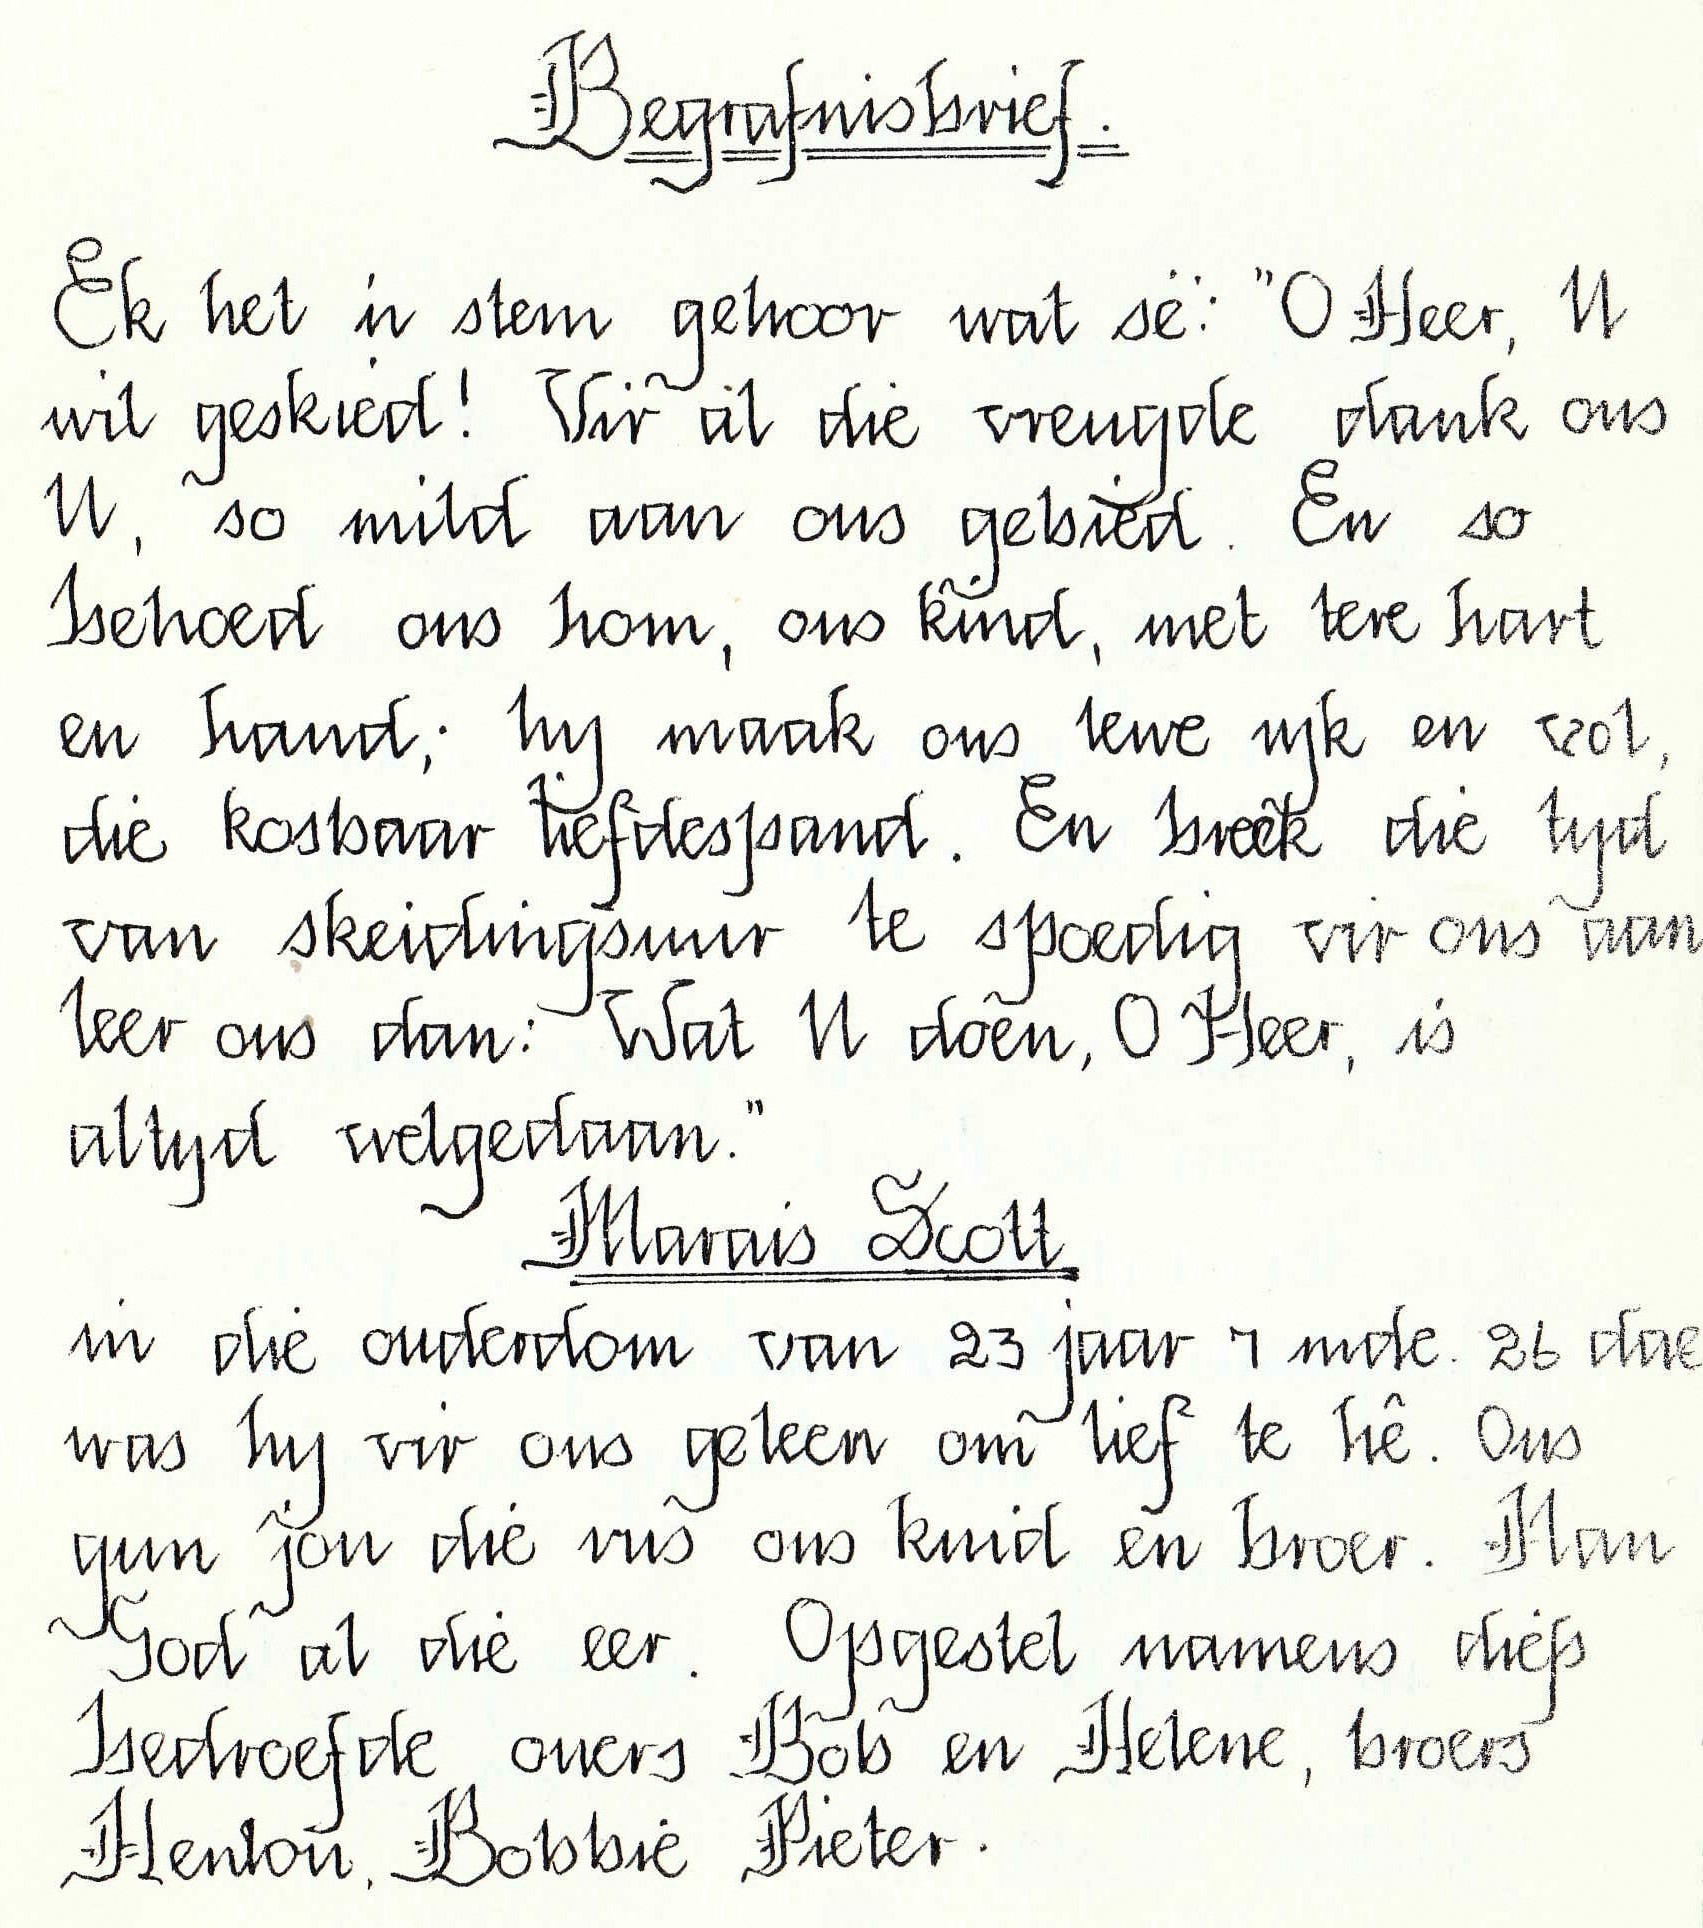 Begrafnisbrief.
Ek het 'n stem gehoor wat sê: "O Heer, U
wil geskied! Vir al die vreugde dank ons
U, so mild aan ons gebied. En so
behoed ons hom, ons kind, met tere hart
en hand; hy maak ons lewe ryk en vol,
die kosbaar liefdespand. En breek die tyd
van skeidingsuur te spoedig vir ons aan
leer ons dan: Wat U doen, O Heer, is
altyd welgedaan."
Marais Scott
in die ouderdom van 23 jaar 7 mde. 26 dae
was hy vir ons geleen om lief te hê. Ons
gun jou die rus ons kind en broer. Aan
God al die eer. Opgestel namens die
bedroefde ouers Bob en Helene, broers
Henlou, Bobbie Pieter.